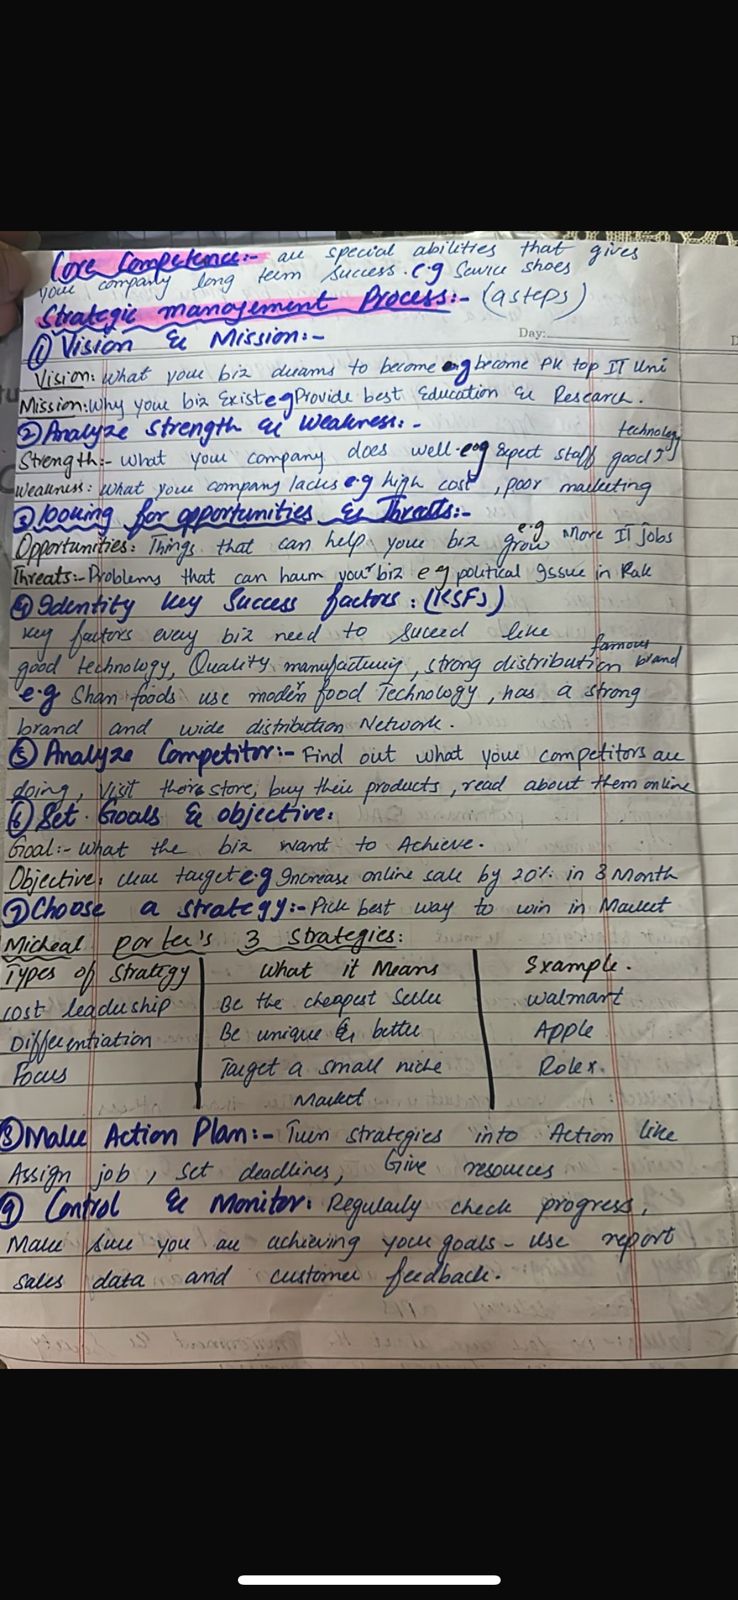 Core Competence:- are special abilities that gives
your company long term success. e.g Service shoes
Strategic management Process:- (9 steps)
Day:
① Vision & Mission:-
Vision: what your biz dreams to become e.g become PK top IT Uni
Mission: Why your biz Exist e.g Provide best Education & Research.
② Analyze Strength & Weakness:-
technology
Strength:- what your company does well e.g Expert staff good
Weakness: what your company lacks e.g high cost, poor marketing
③ looking for opportunities & Threats:-
e.g
Opportunities: Things that can help your biz grow More IT jobs
Threats:- Problems that can harm your biz e g political Issue in Pak
④ Identity key Success factors: (KSFs)
key factors every biz need to suceed like
famous
good technology, Quality manufacturing, strong distribution brand
e.g Shan foods use modern food Technology, has a strong
brand and wide distribution Network.
⑤ Analyze Competitor:- Find out what your competitors are
doing, Visit their store, buy their products, read about them online
⑥ Set Goals & objective:
Goal:- what the biz want to Achieve.
Objective: clear target e.g Increase online sale by 20% in 3 Month
⑦ Choose a strategy:- Pick best way to win in Market
Micheal porter's 3 Strategies:
Types of Strategy What it Means Example.
cost leadership Be the cheapest Seller walmart
Differentiation Be unique & better Apple
Focus Target a small niche Rolex.
Market
⑧ Make Action Plan:- Turn strategies into Action like
Assign job, set deadlines, Give resources
⑨ Control & Monitor: Regularly check progress,
Make sure you are achieving your goals - use report
sales data and customer feedback.